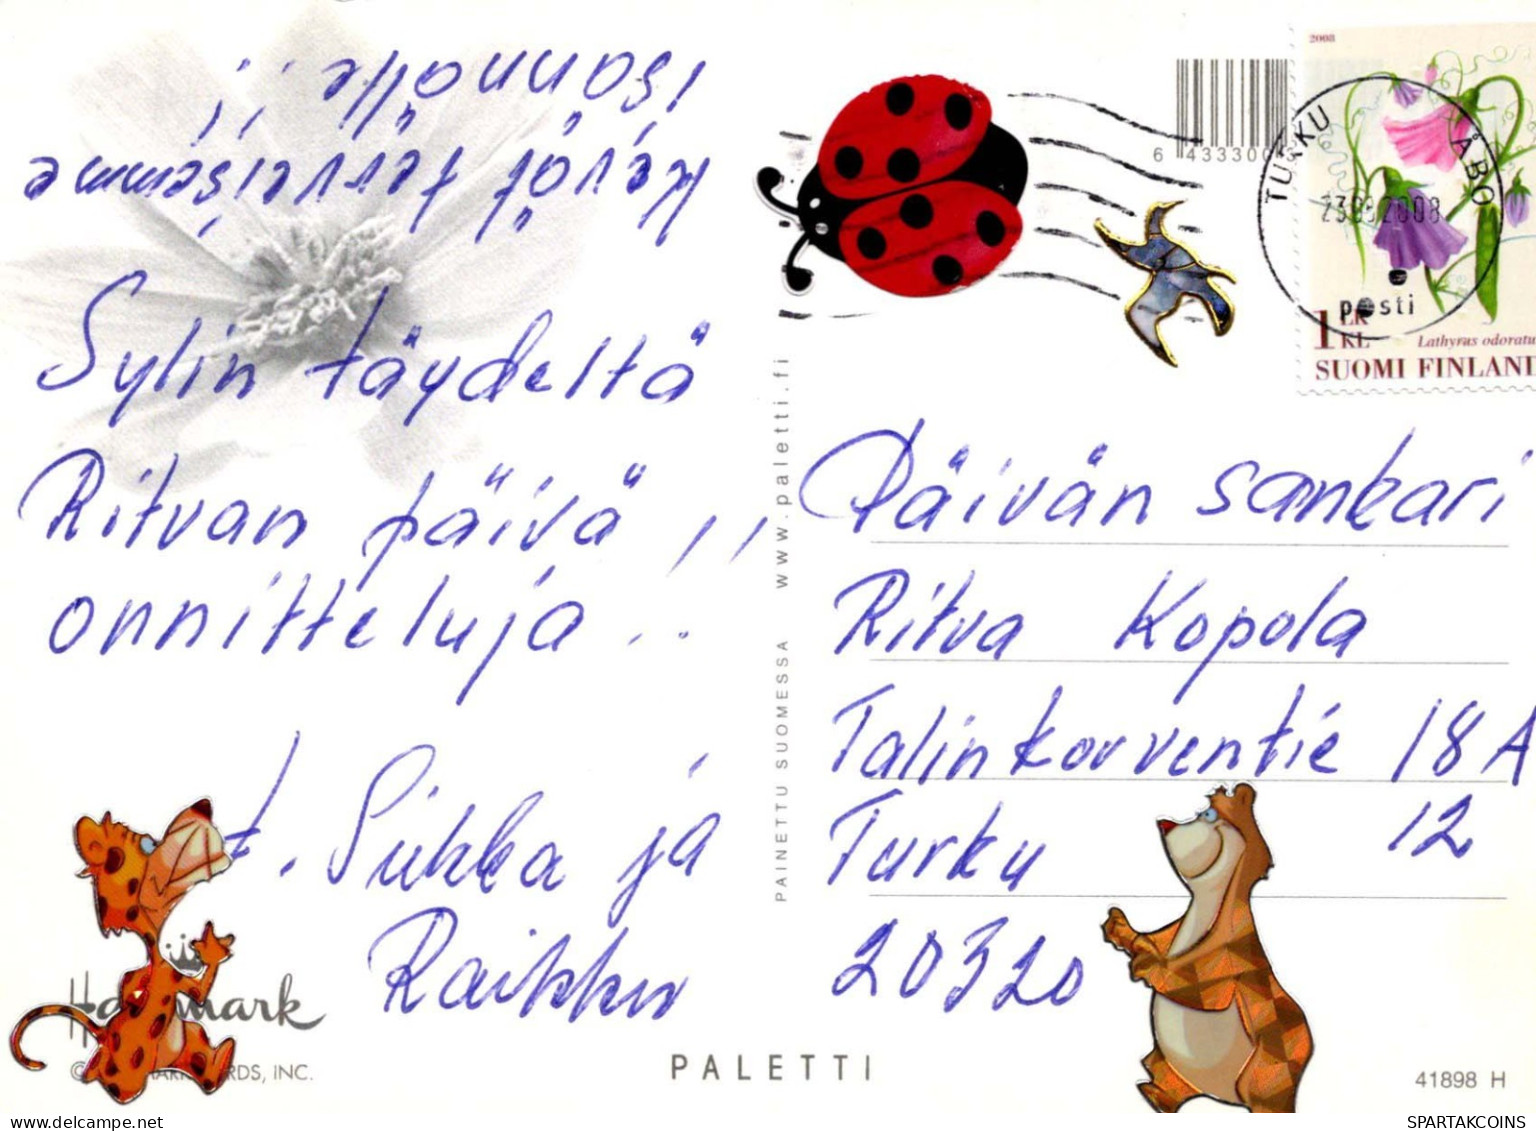 Sylin täydeltä
Ritvan päivä
onnitteluja ..
t. Sirkka ja
Raikku
Kevät terveisemme
Isonnolle..!
Hallmark
RDS, INC.
PALETTI
PAINETTU SUOMESSA www.paletti.fi
6 43330
2008
TURKU ÅBO
2008
posti
1 LK
KL
Lathyrus odoratu
SUOMI FINLAND
Päivän sankari
Ritva Kopola
Talinkorventie 18A
Turku 12
20320
41898 H
SPARTAKCOINS
www.delcampe.net